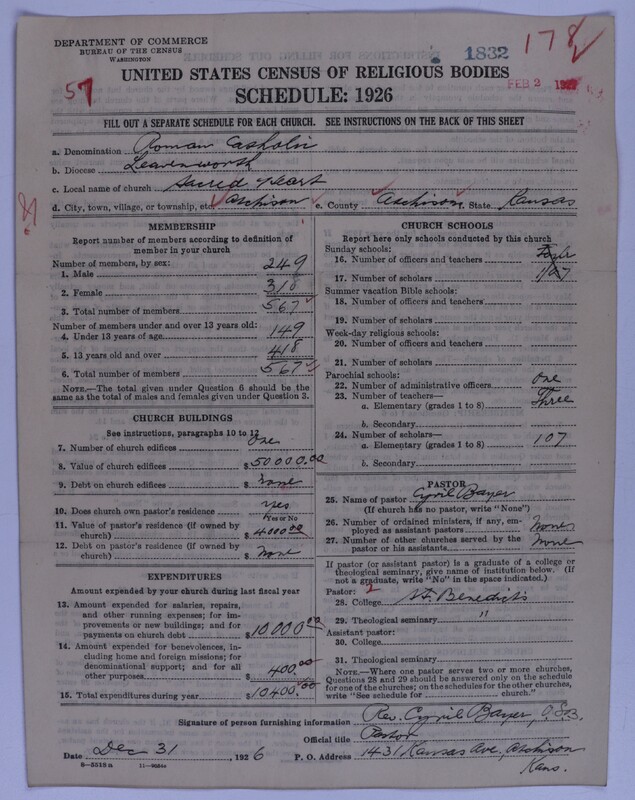 DEPARTMENT OF COMMERCE
BUREAU OF THE CENSUS
WASHINGTON
1832
178
57
FEB 2 1927
UNITED STATES CENSUS OF RELIGIOUS BODIES
SCHEDULE: 1926
FILL OUT A SEPARATE SCHEDULE FOR EACH CHURCH. SEE INSTRUCTIONS ON THE BACK OF THIS SHEET
a. Denomination Roman Catholic
b. Diocese Leavenworth
c. Local name of church Sacred Heart
d. City, town, village, or township, etc. Atchison e. County Atchison f. State Kansas
MEMBERSHIP
Report number of members according to definition of
member in your church
Number of members, by sex:
1. Male 249
2. Female 318
3. Total number of members 567
Number of members under and over 13 years old:
4. Under 13 years of age 149
5. 13 years old and over 418
6. Total number of members 567
NOTE.—The total given under Question 6 should be
same as the total of males and females given under Question 3.
CHURCH BUILDINGS
See instructions, paragraphs 10 to 12
7. Number of church edifices One
8. Value of church edifices $50000.00
9. Debt on church edifices $ None
10. Does church own pastor's residence? yes
Yes or No
11. Value of pastor's residence (if owned by
church) $4000.00
12. Debt on pastor's residence (if owned by
church) $ None
EXPENDITURES
Amount expended by your church during last fiscal year
13. Amount expended for salaries, repairs,
and other running expenses; for im-
provements or new buildings; and for
payments on church debt $10,000.00
14. Amount expended for benevolences,
including home and foreign missions; for
denominational support; and for all
other purposes $400.00
15. Total expenditures during year $10400.00
CHURCH SCHOOLS
Report here only schools conducted by this church
Sunday schools:
16. Number of officers and teachers
17. Number of scholars 107
Summer vacation Bible schools:
18. Number of officers and teachers
19. Number of scholars
Week-day religious schools:
20. Number of officers and teachers
21. Number of scholars
Parochial schools:
22. Number of administrative officers One
23. Number of teachers—
a. Elementary (grades 1 to 8) Three
b. Secondary
24. Number of scholars—
a. Elementary (grades 1 to 8) 107
b. Secondary
PASTOR
25. Name of pastor Cyril Bayer
(If church has no pastor, write "None")
26. Number of ordained ministers, if any, em-
ployed as assistant pastors None
27. Number of other churches served by the
pastor or his assistants None
If pastor (or assistant pastor) is a graduate of a college or
theological seminary, give name of institution below. (If
not a graduate, write "No" in the space indicated.)
Pastor: 2
28. College St. Benedicts
29. Theological seminary "
Assistant pastor:
30. College
31. Theological seminary
NOTE.—Where one pastor serves two or more churches,
Questions 28 and 29 should be answered only on the schedule
for one of the churches; on the schedules for the other churches,
write "See schedule for church."
Signature of person furnishing information Rev. Cyril Bayer, O.S.B.
Official title Pastor
Date Dec 31, 1926 P. O. Address 1431 Kansas Ave, Atchison
Kans.